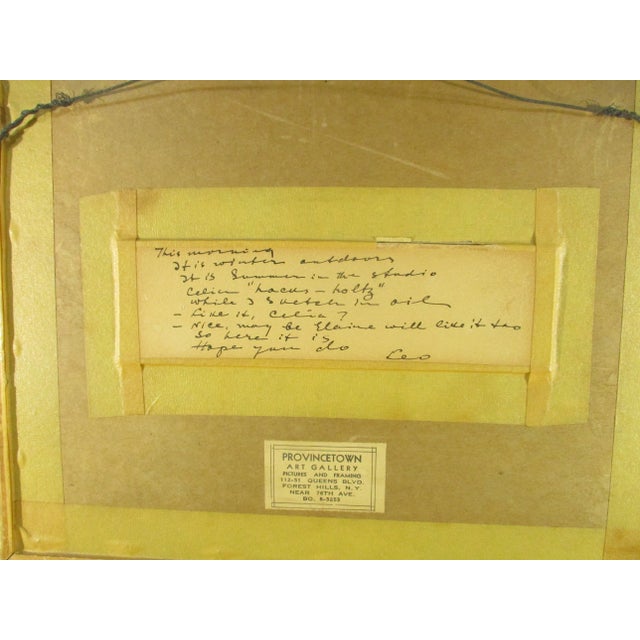 This morning
It is winter outdoors
It is Summer in the studio
Celia "hacks - holtz"
While I Sketch in oil
- Like it, Celia?
- Nice, may be Elaine will like it too
So here it is
Hope you do
Leo
PROVINCETOWN
ART GALLERY
PICTURES AND FRAMING
112-51 QUEENS BLVD.
FOREST HILLS, N.Y.
NEAR 76TH AVE.
BO. 8-5253